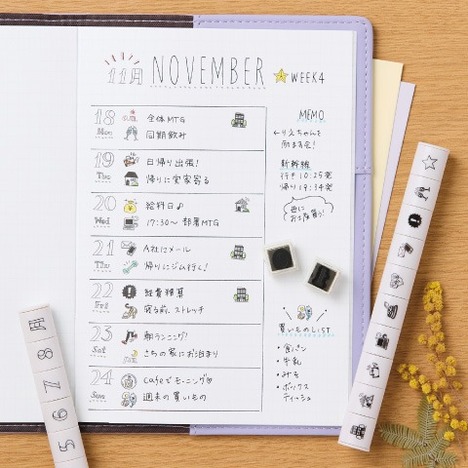 11月 NOVEMBER WEEK4
18 Mon
全体MTG
同期飲み
19 Tue
日帰り出張!
帰りに実家寄る
20 Wed
給料日♪
17:30〜 部署MTG
21 Thu
A社にメール
帰りにジム行く!
22 Fri
経費精算
寝る前にストレッチ
23 Sat
朝ランニング!
さちの家にお泊まり
24 Sun
Cafeでモーニング♡
週末の買いもの
MEMO
新幹線
行き 10:25発
買いものLIST
・食パン
・牛乳
・みそ
・ボックス
ティッシュ
8
7
6
5